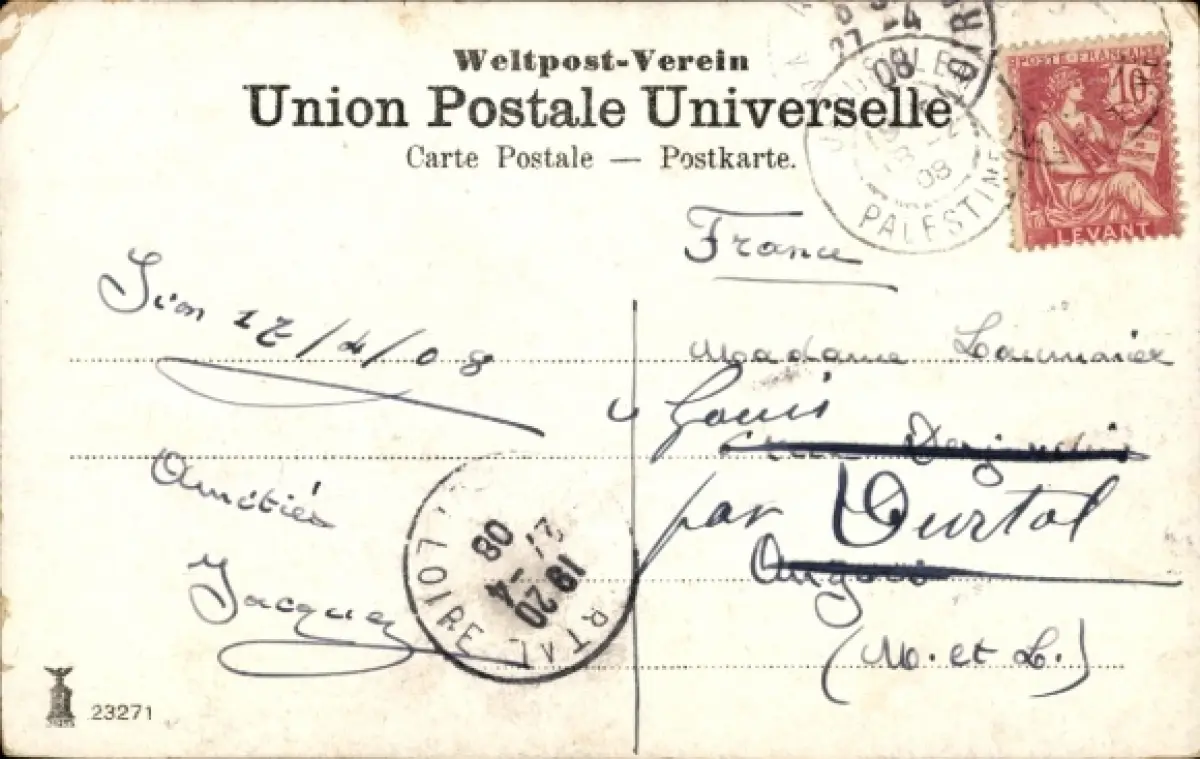 Weltpost-Verein
Union Postale Universelle
Carte Postale — Postkarte.
27 -4
08
OIRE
JERUSALEM
08
PALESTINE
POSTE FRANÇAISE
10
LEVANT
France
Sion 17/4/08
Amitiés
Jacques
Madame
à Gouis
par Durtal
Angers
(M. et L.)
LOIRE
RTAL
19 20
27 -4
08
23271